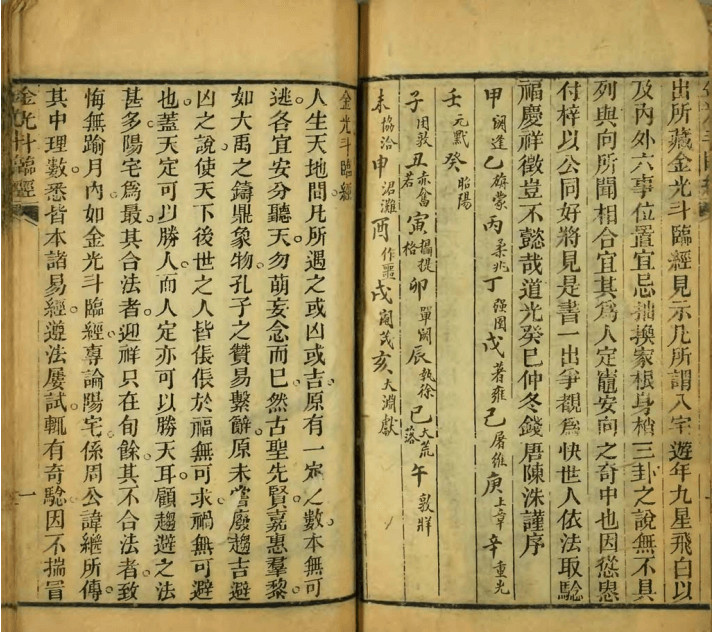 出所藏金光斗臨經見示凡所謂入宅遊年九星飛白以
及內外六事位置宜忌抽換家根身梢三卦之說無不具
列與向所聞相合宜其爲人定竈安向之奇中也因慫恿
付梓以公同好將見是書一出爭覩爲快世人依法取驗
福慶祥徵豈不懿哉道光癸巳仲冬錢唐陳洙謹序
甲閼逢乙旃蒙丙柔兆丁强圉戊著雍己屠維庚上章辛重光
壬元黓癸昭陽
子困敦丑赤奮若寅攝提格卯單閼辰執徐巳大荒落午敦牂
未協洽申涒灘酉作噩戌閹茂亥大淵獻
金光斗臨經
人生天地間凡所遇之或凶或吉原有一定之數本無可
逃各宜安分聽天勿萌妄念而已然古聖先賢嘉惠羣黎
如大禹之鑄鼎象物孔子之贊易繫辭原未嘗廢趨吉避
凶之說使天下後世之人皆倀倀於福無可求禍無可避
也蓋天定可以勝人而人定亦可以勝天耳顧趨避之法
甚多陽宅爲最其合法者迎祥只在旬餘其不合法者致
悔無踰月內如金光斗臨經專論陽宅係周公諱繼所傳
其中理數悉皆本諸易經遵法屢試輒有奇驗因不揣冒
金光斗臨經
一